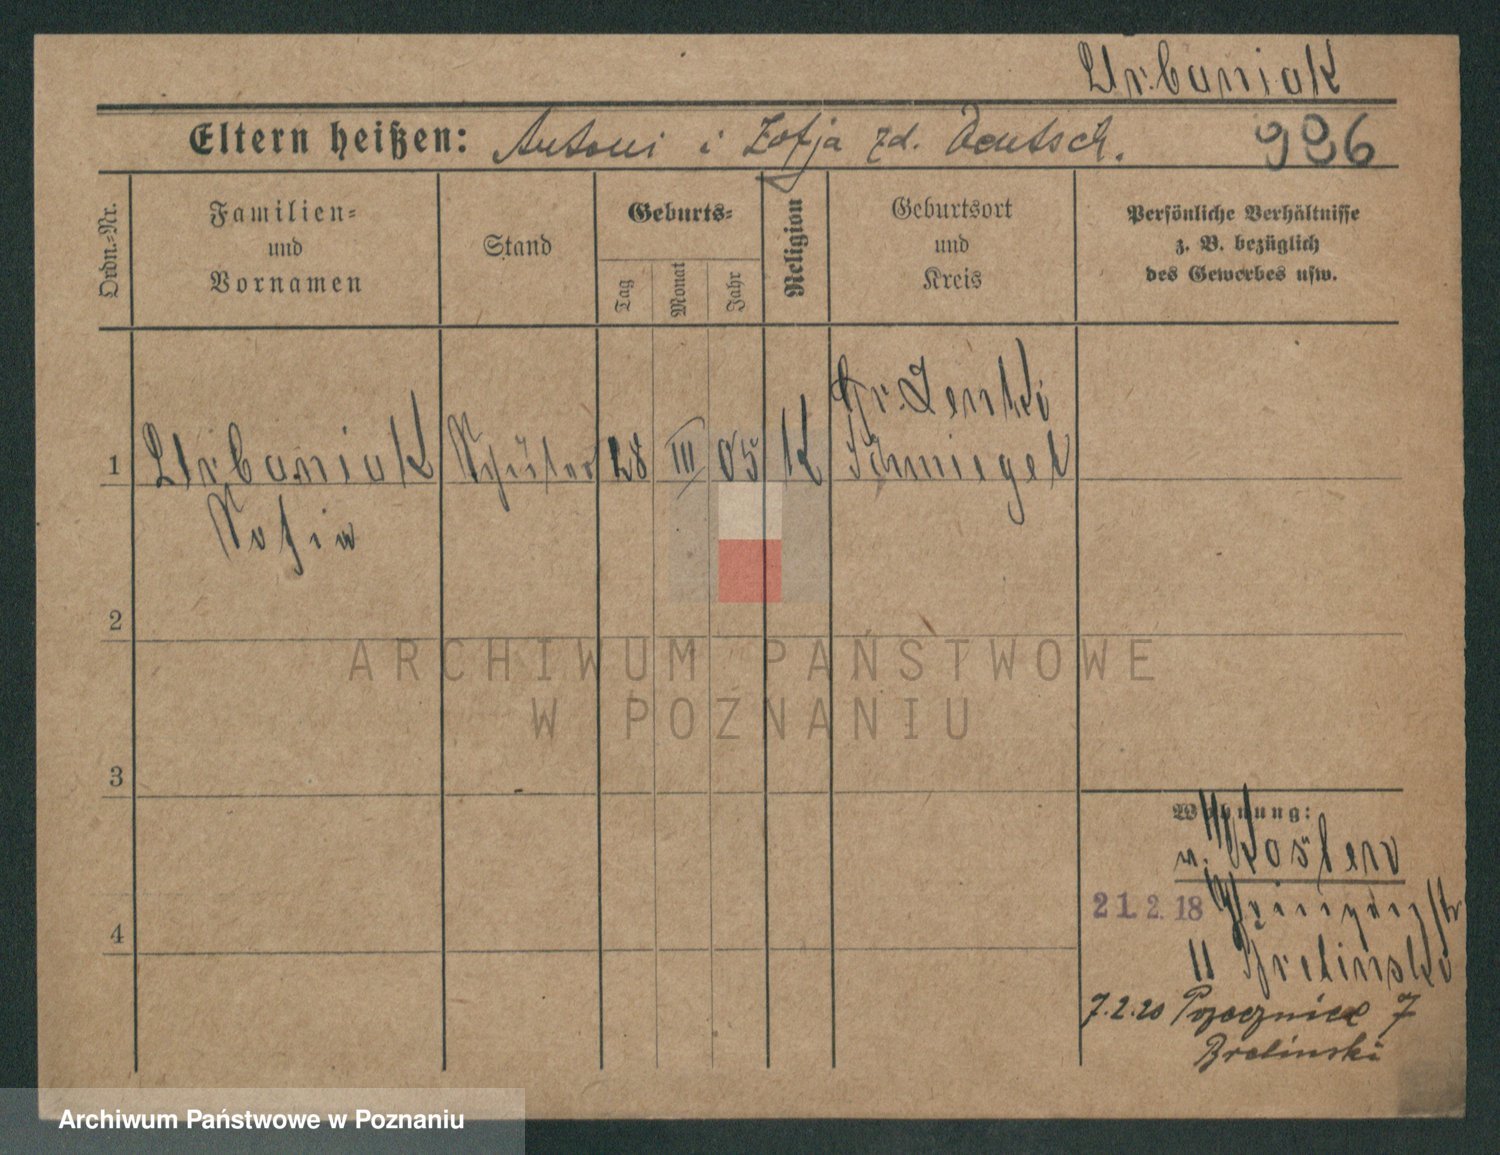 Urbaniak
Eltern heißen: Antoni i Zofja zd. Deutsch.
996
Ordn.-Nr.
Familien-
und
Vornamen
Stand
Geburts-
Tag
Monat
Jahr
Religion
Geburtsort
und
Kreis
Persönliche Verhältnisse
z. B. bezüglich
des Gewerbes usw.
Gr. Lenki
1 Urbaniak Schüler 28 III 05 K Schmiegel
Sofia
2
ARCHIWUM PAŃSTWOWE
W POZNANIU
3
Wohnung:
v. Kosten
21. 2. 18
11 Brelinski
4
7.2.20 7
Brelinski
Archiwum Państwowe w Poznaniu